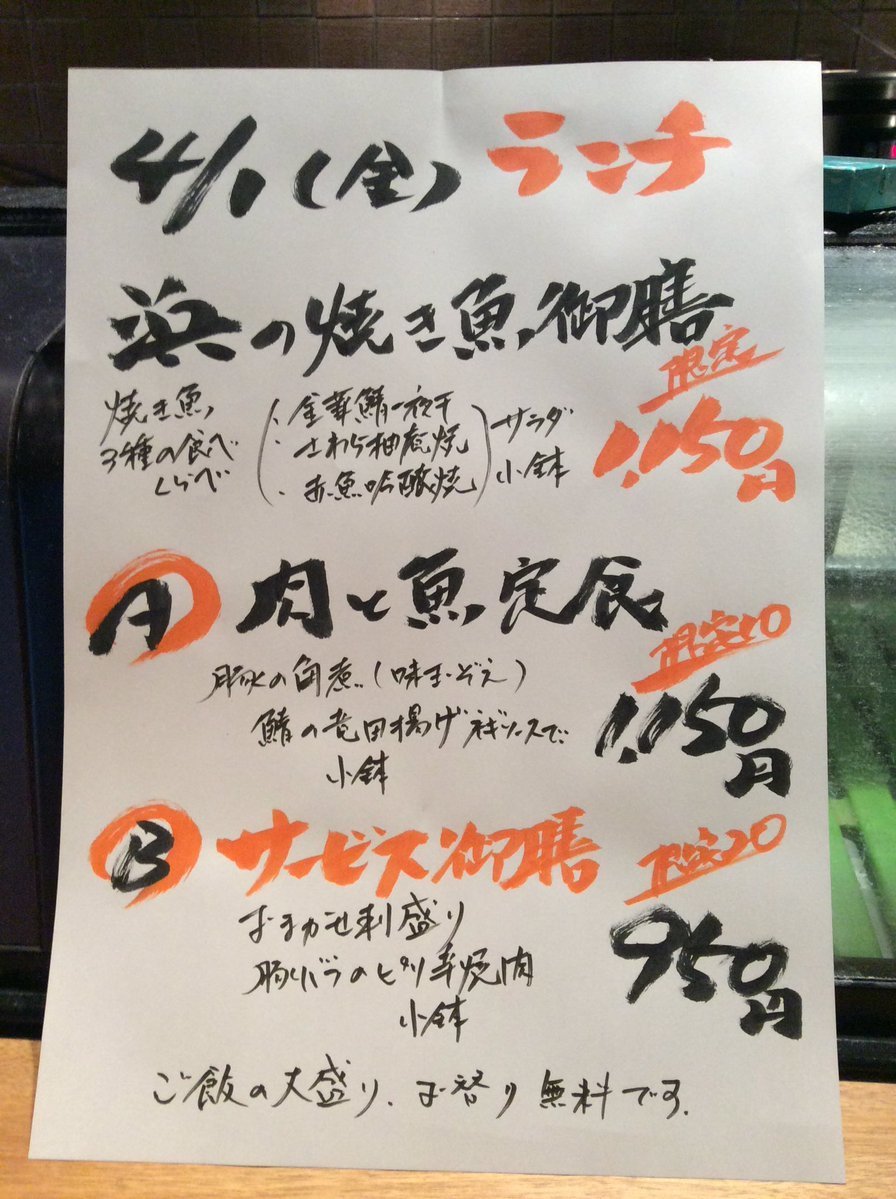 4/1(金) ランチ
浜の焼き魚御膳
限定
焼き魚
3種の食べ
くらべ
・金華鯖一夜干
・さわら柚庵焼
・赤魚吟醸焼
サラダ
小鉢
1,150円
A 肉と魚定食
限定10
豚の角煮(味玉ぞえ)
鯖の竜田揚げネギソースで
小鉢
1,150円
B サービス御膳
限定20
おまかせ刺盛り
豚バラのピリ辛焼肉
小鉢
950円
ご飯の大盛り、お替り無料です。